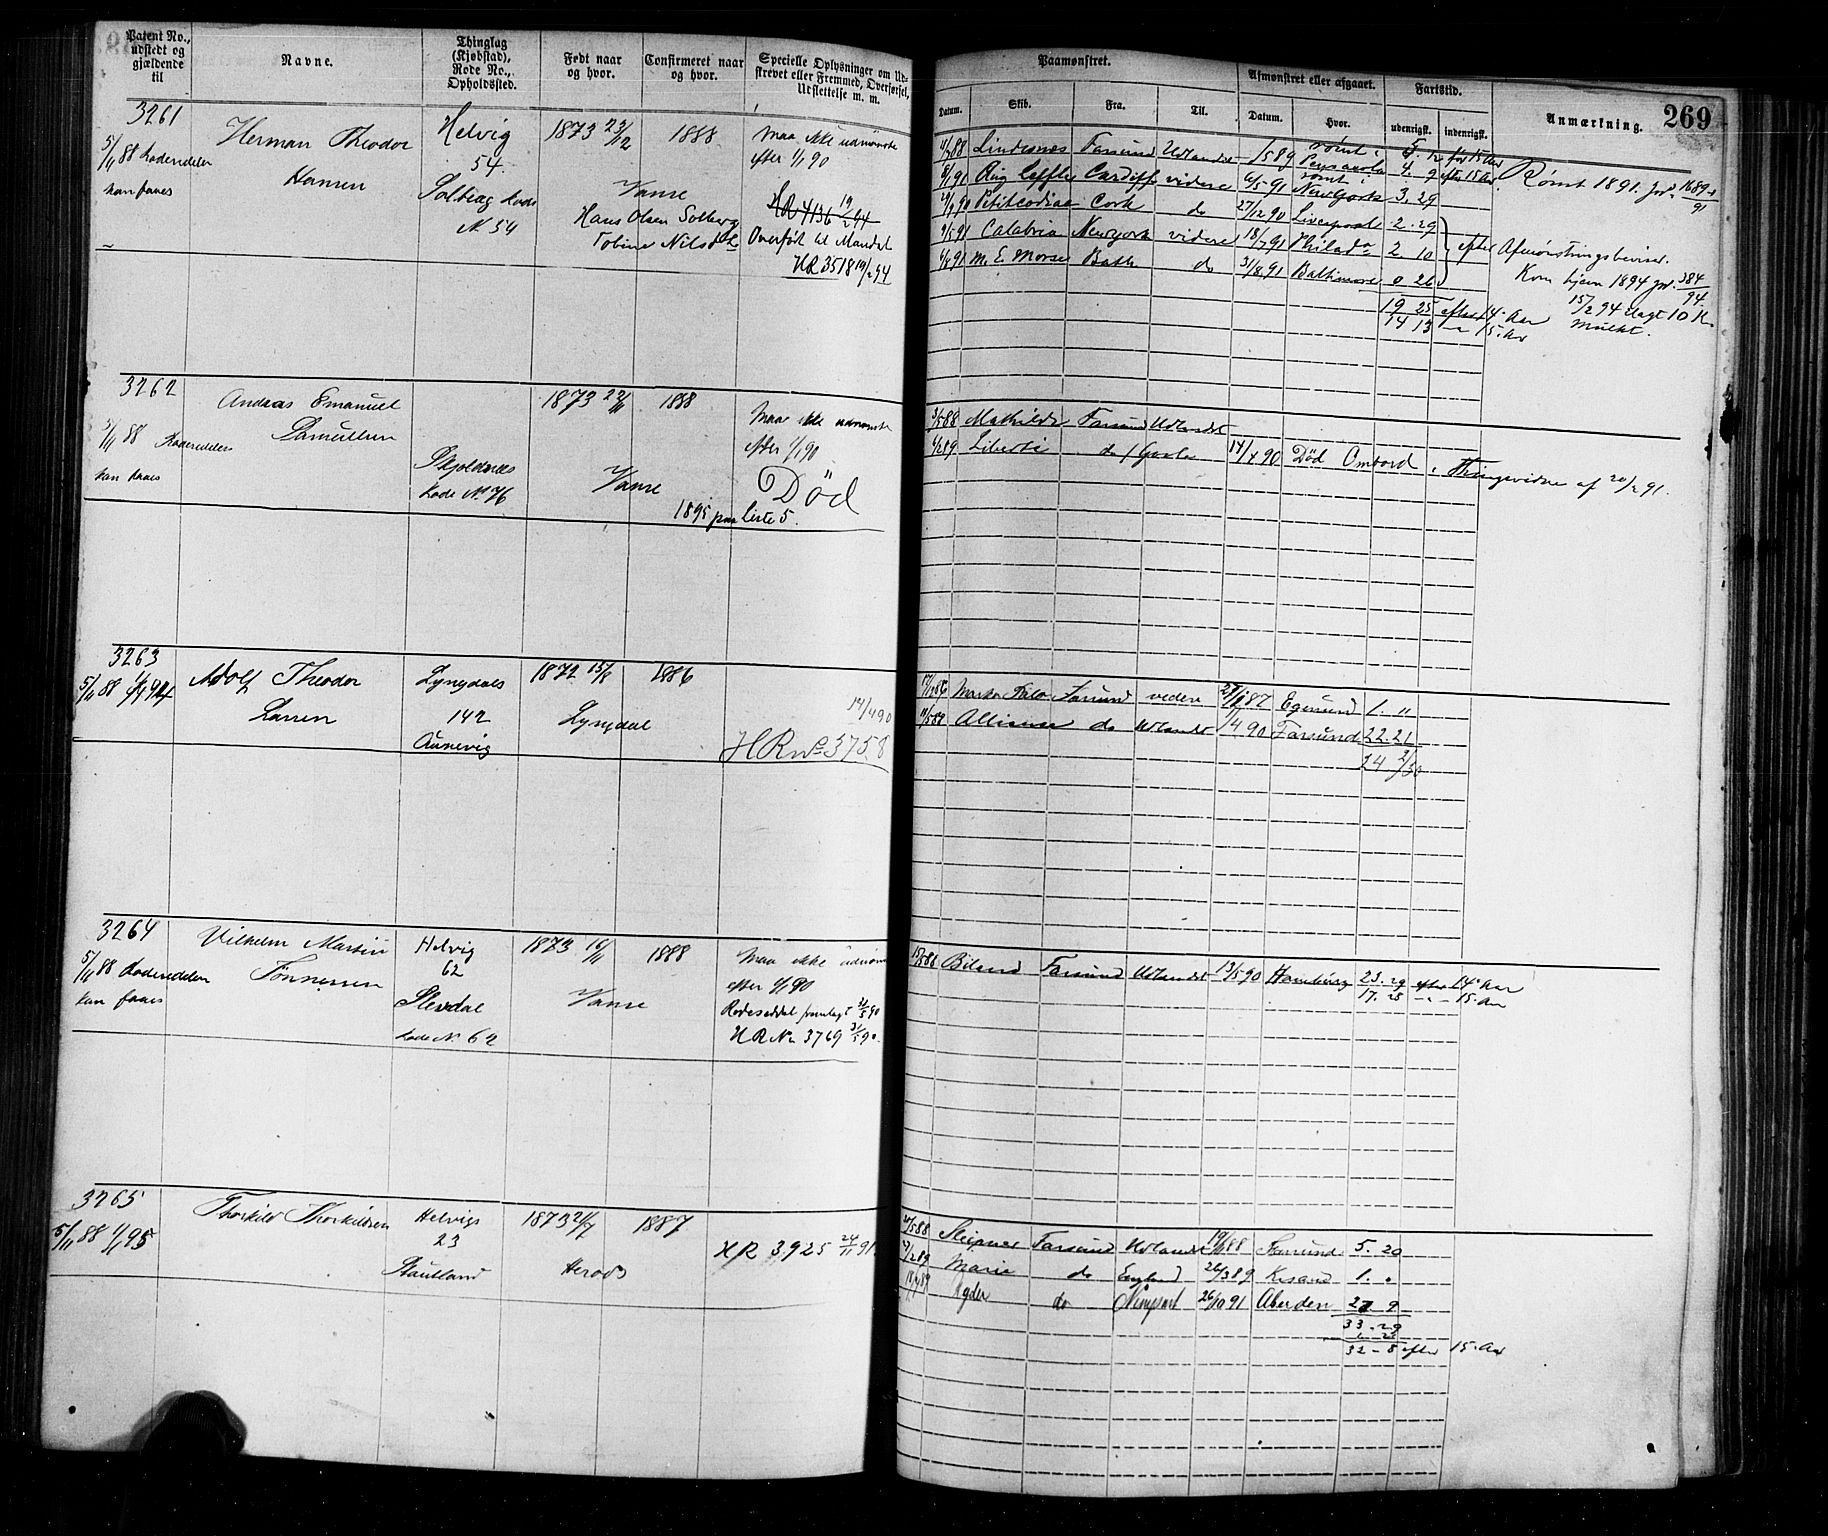 Patent No., udstedt og gjældende til
Navne.
Thinglag (Kjøbstad), Rode No., Opholdssted.
Født naar og hvor.
Confirmeret naar og hvor.
Specielle Oplysninger om Udstrevet eller Fremmed, Overførsel, Udslettelse m. m.
Paamønstret.
Datum.
Skib.
Fra.
Til.
Afmønstret eller afgaaet.
Datum.
Hvor.
Fartstid.
udenrigsk.
indenrigsk.
Anmærkning.
269
3261
5/11 88 Rodesedelen
kan faaes
Herman Theodor
Hansen
Helvig
54
Solberg Rode
N. 54
1873 23/12
Vanse
Hans Olsen Solberg
Tobine Nilsd
1888
Maa ikke udmønste
efter 1/1 90
HR 4136 19/2 94
Overført til Mandal
HR 3518 19/2 94
11/7 88 Lindesnæs Farsund Udlandet 1/5 89 rømt i Pensacola 5. 12 før 15 Aar
4. 9 efter 15 Aar
Aug Leffler Cardiff videre 6/5 91 rømt i Newyork 3. 29
Petitcodiac Cork do 27/12 90 Liverpool 2. 29
9/5 91 Calabria Newyork videre 18/7 91 Philada 2 10
M. E. Morse Bath do 31/8 91 Baltimore 0 26
efter Afmønstringsbeviser.
19 25 efter 14 Aar
14 13 " 15. Aar
Rømt 1891. jrl. 1689/91
Kom hjem 1894 jrl. 384/94
15/2 94 ilagt 10 Kr
Mulkt.
3262
5/11 88 Rodesedelen
kan faaes
Andreas Emanuel
Samuelsen
Skjoldnæs
Rode N. 76
1873 22/11
Vanse
1888
Maa ikke udmønste
efter 1/1 90
Død
1895 paa Liste 5.
3/5 88 Mathilde Farsund Udlandet
Liberté do / Goole 14/4 90 Død Ombord
Thingsvidne af 20/2 91.
3263
5/11 88 1/1 94
Adolf Theodor
Larsen
Lyngdals
142
Aunevig
1872 15/8
Lyngdal
1886
14/4 90
HR No 3758
Farsund videre 87 Egersund 1. "
11/5 89 Alliance do Udlandet /4 90 Farsund 22. 21
24 2/30
3264
5/11 88 Rodesedelen
kan faaes
Vilhelm Martin
Tønnessen
Helvig
62
Slevdal
Rode N. 62
1873 16/11
Vanse
1888
Maa ikke udmøn
efter 1/1 90
Rodeseddel fremlagt 31/5 90
HR No 3769 31/5 90.
Farsund Udlandet 13/5 90 Hamburg 23. 29 efter 14 Aar
17. 28 " 15. Aar
3265
5/11 88 1/1 95
Thorkild Thorkildsen
Helvigs
23
Stautland
1873 21/7
Herods
1887
HR 3925 24/11 91
Sleipner Farsund Udlandet 19/10 88 Farsund 5. 20
Marie do England 26/3 89 Krsand 1. "
Agder do Newport 26/10 91 Aberdeen 27 9
33. 29
32 - 8 efter 15. Aar